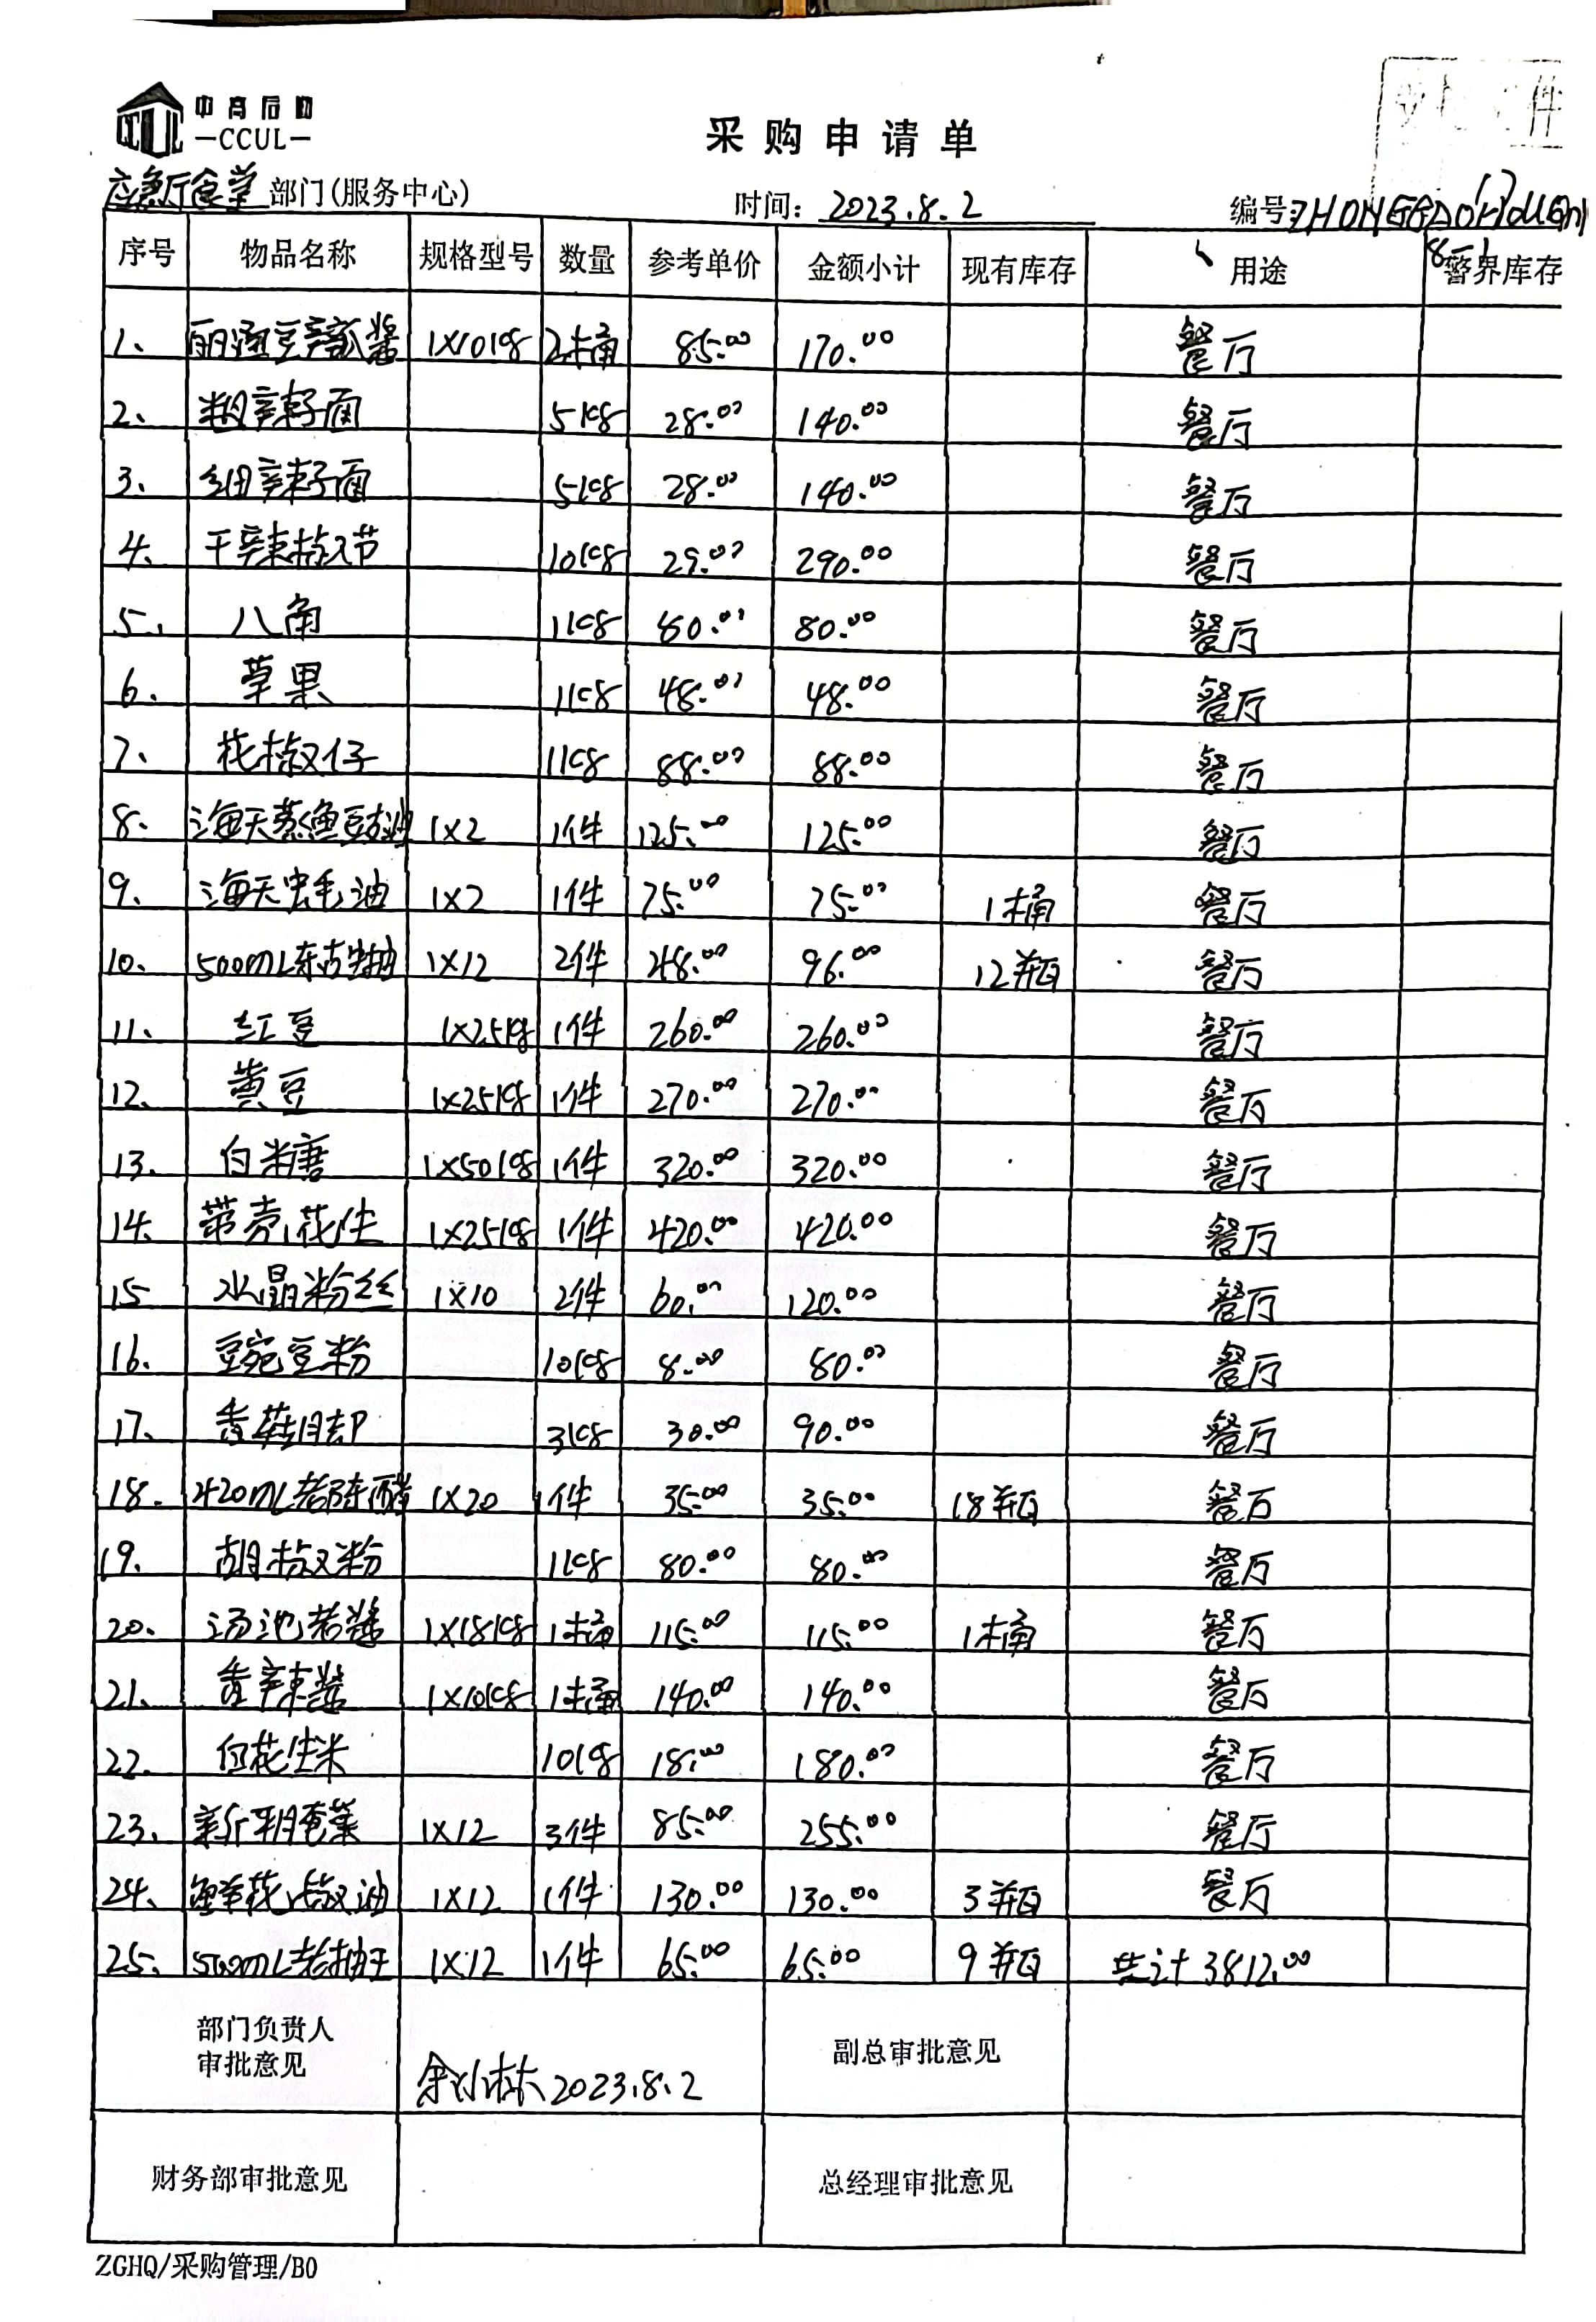 中高后勤
CCUL
采购申请单
应急厅食堂 部门(服务中心) 时间: 2023.8.2 编号:
序号 物品名称 规格型号 数量 参考单价 金额小计 现有库存 用途 警界库存
1、 丽通豆瓣酱 1X10kg 2桶 85.00 170.00 餐厅
2、 粗辣子面 5kg 28.00 140.00 餐厅
3、 细辣子面 5kg 28.00 140.00 餐厅
4、 干辣椒节 10kg 29.00 290.00 餐厅
5、 八角 1kg 80.00 80.00 餐厅
6、 草果 1kg 48.00 48.00 餐厅
7、 花椒仔 1kg 88.00 88.00 餐厅
8、 海天蒸鱼豉油 1X2 1件 125.00 125.00 餐厅
9、 海天蚝油 1X2 1件 75.00 75.00 1桶 餐厅
10、 500mL东古生抽 1X12 2件 48.00 96.00 12瓶 餐厅
11、 红豆 1X25kg 1件 260.00 260.00 餐厅
12、 黄豆 1X25kg 1件 270.00 270.00 餐厅
13、 白糖 1X50kg 1件 320.00 320.00 餐厅
14、 带壳花生 1X25kg 1件 420.00 420.00 餐厅
15 水晶粉丝 1X10 2件 60.00 120.00 餐厅
16、 豌豆粉 10kg 8.00 80.00 餐厅
17、 香菇脚 3kg 30.00 90.00 餐厅
18、 420mL老陈醋 1X20 1件 35.00 35.00 18瓶 餐厅
19、 胡椒粉 1kg 80.00 80.00 餐厅
20、 汤池老酱 1X18kg 1桶 115.00 115.00 1桶 餐厅
21、 香辣酱 1X10kg 1桶 140.00 140.00 餐厅
22、 白花生米 10kg 18.00 180.00 餐厅
23、 新平腌菜 1X12 3件 85.00 255.00 餐厅
24、 鲜花椒油 1X12 1件 130.00 130.00 3瓶 餐厅
25、 500mL老抽王 1X12 1件 65.00 65.00 9瓶 共计3812.00
部门负责人
审批意见
余小栋 2023.8.2
副总审批意见
财务部审批意见 总经理审批意见
ZGHQ/采购管理/B0